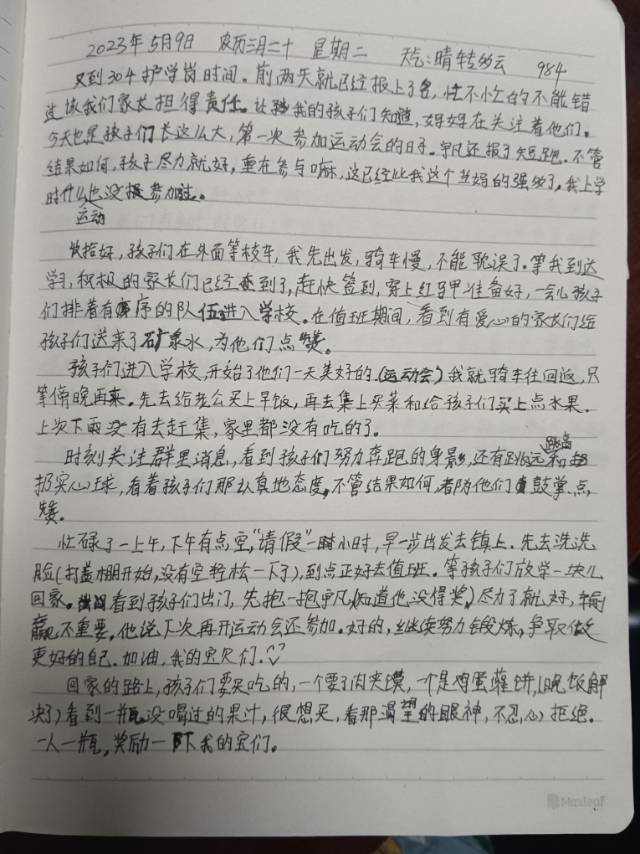 2023年5月9日 农历三月二十 星期二 天气:晴转多云 984
又到304护学岗时间。前两天就已经报上了名,忙不忙的不能错
过该我们家长担得责任。让我的孩子们知道,妈妈在关注着他们。
今天也是孩子们长这么大,第一次参加运动会的日子。宇凡还报了短跑。不管
结果如何,孩子尽力就好,重在参与嘛,这已经比我这个当妈的强多了,我上学
时什么运动也没报参加过。
恰好,孩子们在外面等校车,我先出发,骑车慢,不能耽误了。等我到达
学习,积极的家长们已经签到了,赶快签到,穿上红马甲准备好,一会儿孩子
们排着有序的队伍进入学校。在值班期间,看到有爱心的家长们给
孩子们送来了矿泉水,为他们点赞。
孩子们进入学校,开始了他们一天美好的(运动会)我就骑车往回返,只
等傍晚再来。先去给老公买上早饭,再去集上买菜和给孩子们买上点水果。
上次下雨没有去赶集,家里都没有吃的了。
时刻关注群里消息,看到孩子们努力奔跑的身影,还有跳远和
扔实心球,看着孩子们那认真地态度,不管结果如何,都为他们鼓掌点
赞。
忙碌了一上午,下午有点空,“请假”一小时,早一步出发去镇上。先去洗洗
脸(打盖棚开始,没有空轻松一下了),到点正好去值班。等孩子们放学一块儿
回家。看到孩子们出门,先抱一抱宇凡(知道他没得奖)尽力了就好,输
赢不重要。他说下次再开运动会还参加。好的,继续努力锻炼,争取做
更好的自己。加油,我的宝贝们。
回家的路上,孩子们要买吃的,一个要了肉夹馍,一个是鸡蛋灌饼,(晚饭解
决了)看到一瓶没喝过的果汁,很想买,看那渴望的眼神,不忍心拒绝。
一人一瓶,奖励一下我的宝们。
Maxleaf